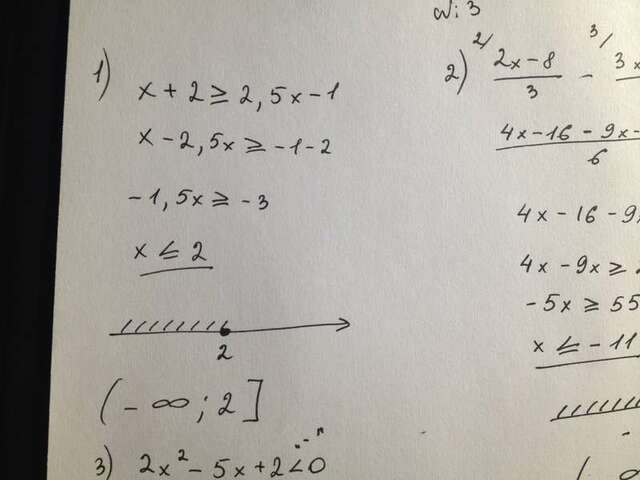 N: 3
1)
x + 2 ≥ 2,5x - 1
x - 2,5x ≥ -1 - 2
-1,5x ≥ -3
x ≤ 2
2
(-∞; 2]
3) 2x² - 5x + 2 < 0
"-"
2) 2/ 2x-8 / 3 - 3/ 3x
4x-16 - 9x- / 6
4x - 16 - 9x
4x - 9x ≥
-5x ≥ 55
x ≤ -11